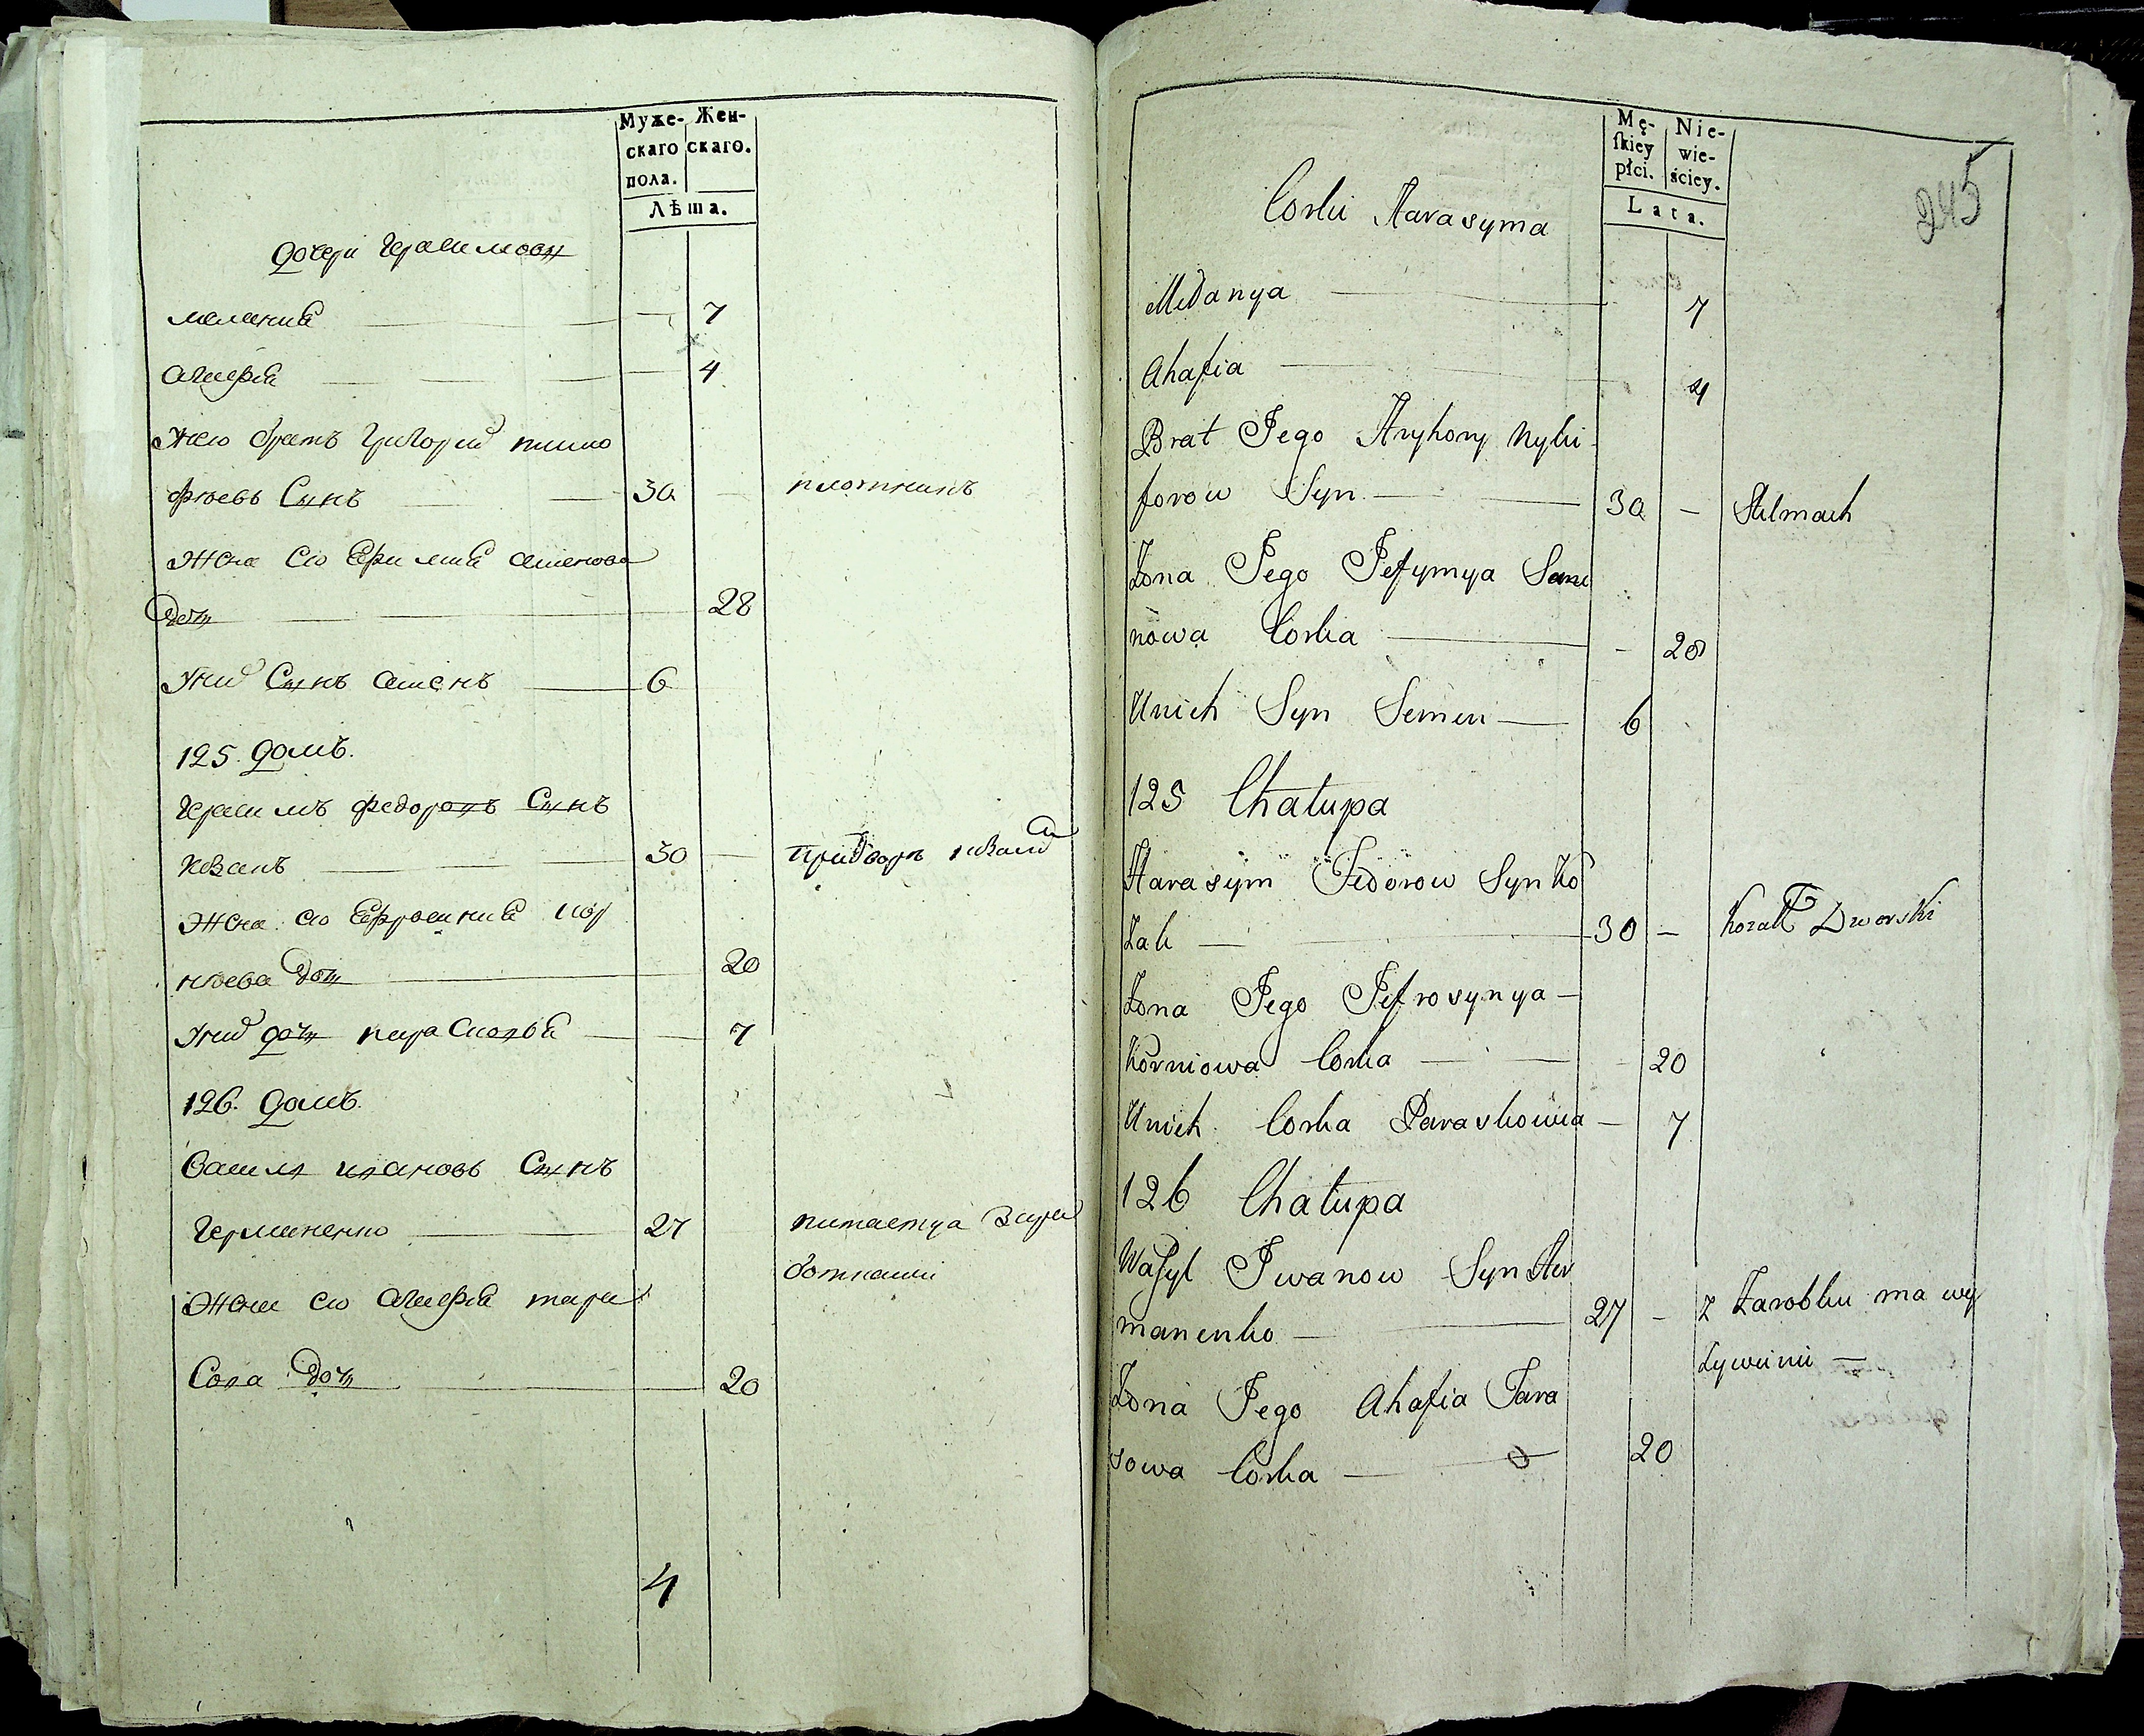 Муже-
скаго
пола.
Жен-
скаго.
Лѣта.
дочери Герасимовы
мелания 7
агафия 4
Его братъ Григорий ники
форовъ Сынъ 30 плотникъ
Жена Его Ефимия семенова
дочь 28
Ихъ Сынъ семенъ 6
125. домъ.
Герасимъ федоровъ Сынъ
козакъ 30 придворный козакъ
Жена его Ефросиния кор
нѣева дочь 20
Ихъ дочь парасковья 7
126. домъ.
василь ивановъ Сынъ
Германенко 27 питается зара
ботками
Жена его агафия тара
сова дочь 20
4
Mę-
ſkiey
płci.
Nie-
wie-
ściey.
Lata.
245
Corki Harasyma
Melanya 7
Ahafia 4
Brat Jego Hryhory Nyki
forow Syn 30 - Stelmach
Żona Jego Jefymya Seme
nowa Corka - 28
Unich Syn Semen 6
125 Chałupa
Harasym Fedorow Syn Ko
zak 30 - Kozak Dworski
Żona Jego Jefrosynya
Korniowa Corka - 20
Unich Corka Paraskowia 7
126 Chałupa
Waſyl Jwanow Syn Her
manenko 27 - Z Zarobku ma wy
żywinie
Żona Jego Ahafia Tara
sowa Corka 20